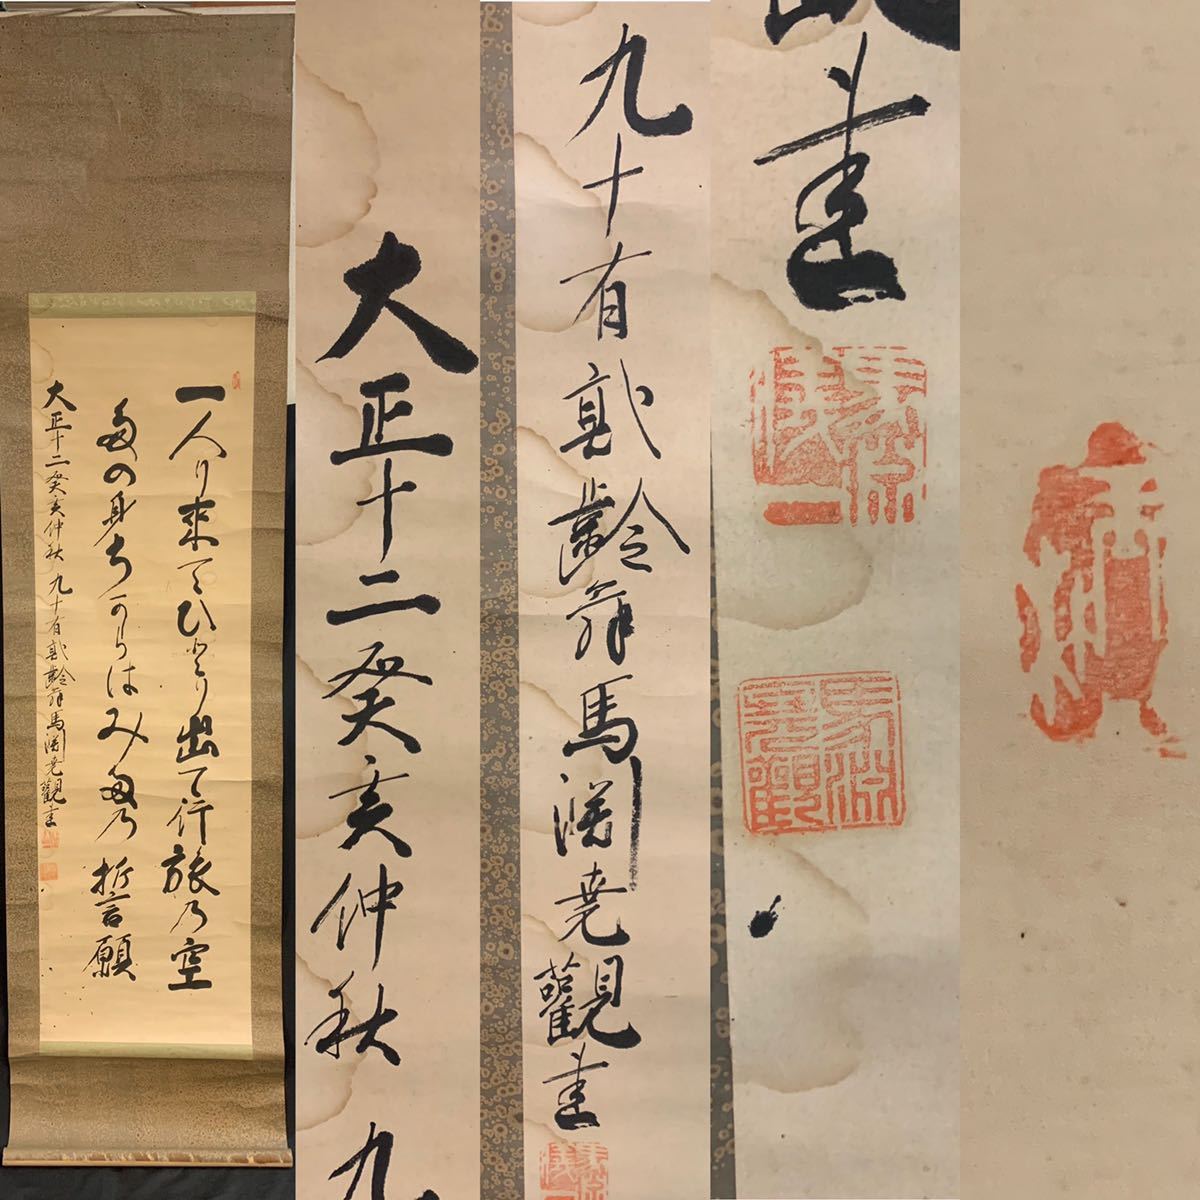 一人り来てひとり出て行旅乃空
多の身ち可らはみ多乃誓願
大正十二癸亥仲秋 九十有貳齢馬渕尭觀書
大正十二癸亥仲秋九
九十有貳齢馬渕尭觀書
書